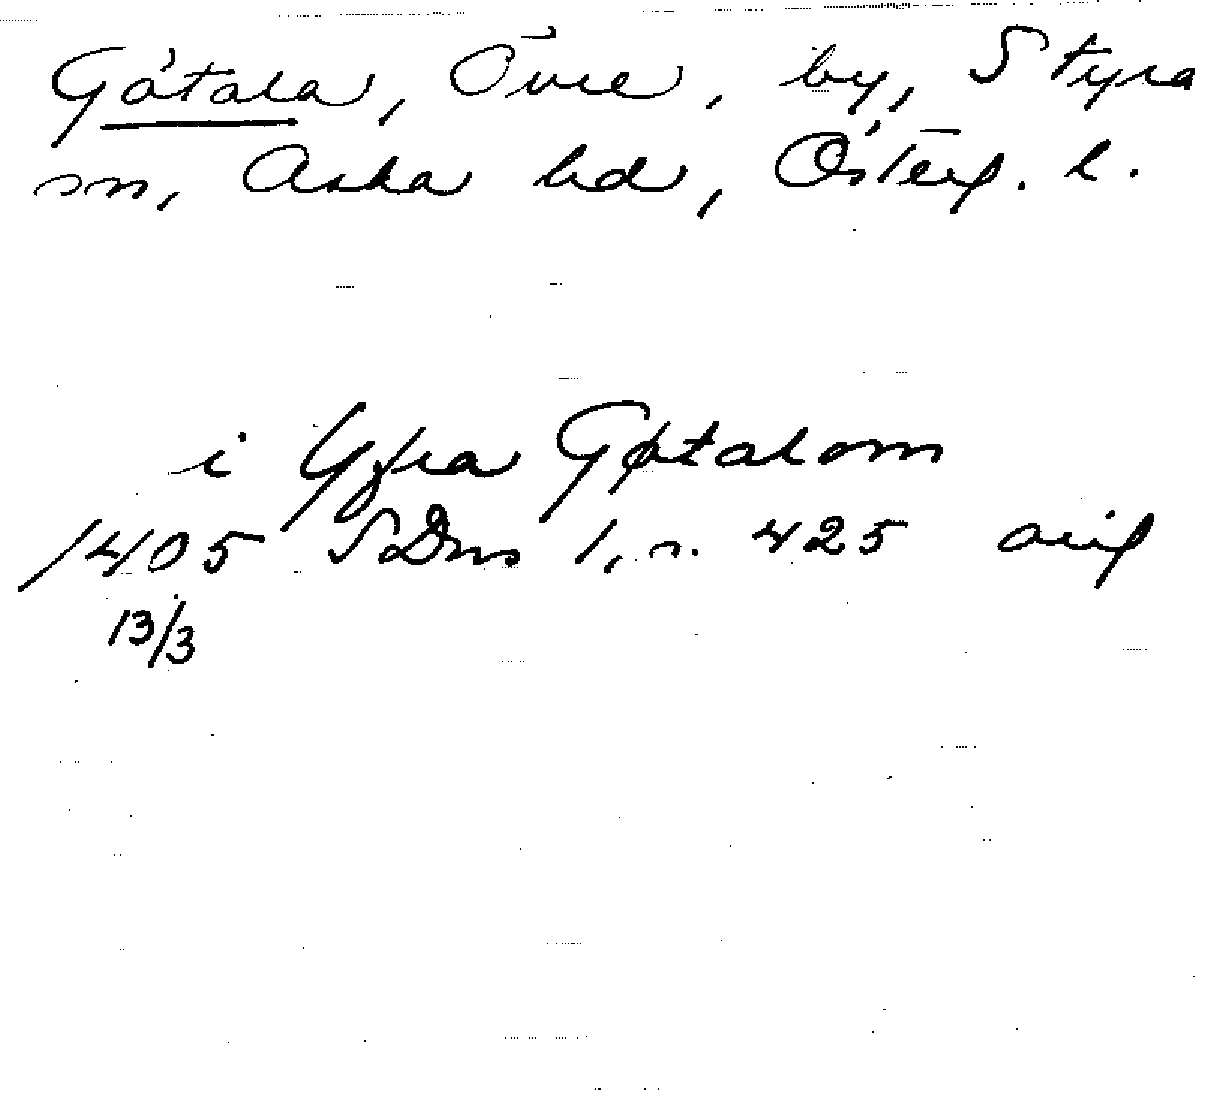 Götala, Övre, by, Styra
sn, Aska hd, Österg. l.
i Yfra Gøtalom
1405 SDns 1, s. 425 orig
13/3